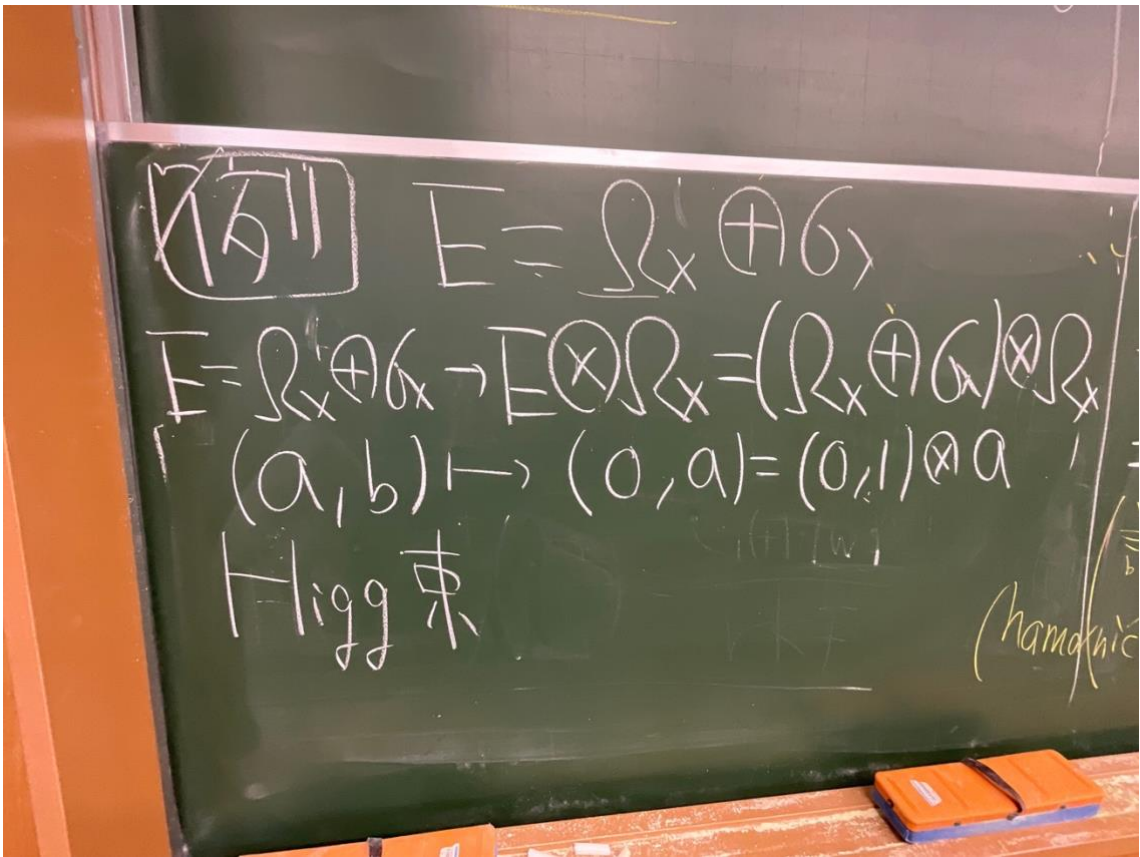 例 E = Ω¹ₓ ⊕ 𝒪ₓ
E = Ω¹ₓ ⊕ 𝒪ₓ → E ⊗ Ωₓ = (Ωₓ ⊕ 𝒪ₓ) ⊗ Ωₓ
(a, b) ↦ (0, a) = (0, 1) ⊗ a
Higg 束
(hamonic